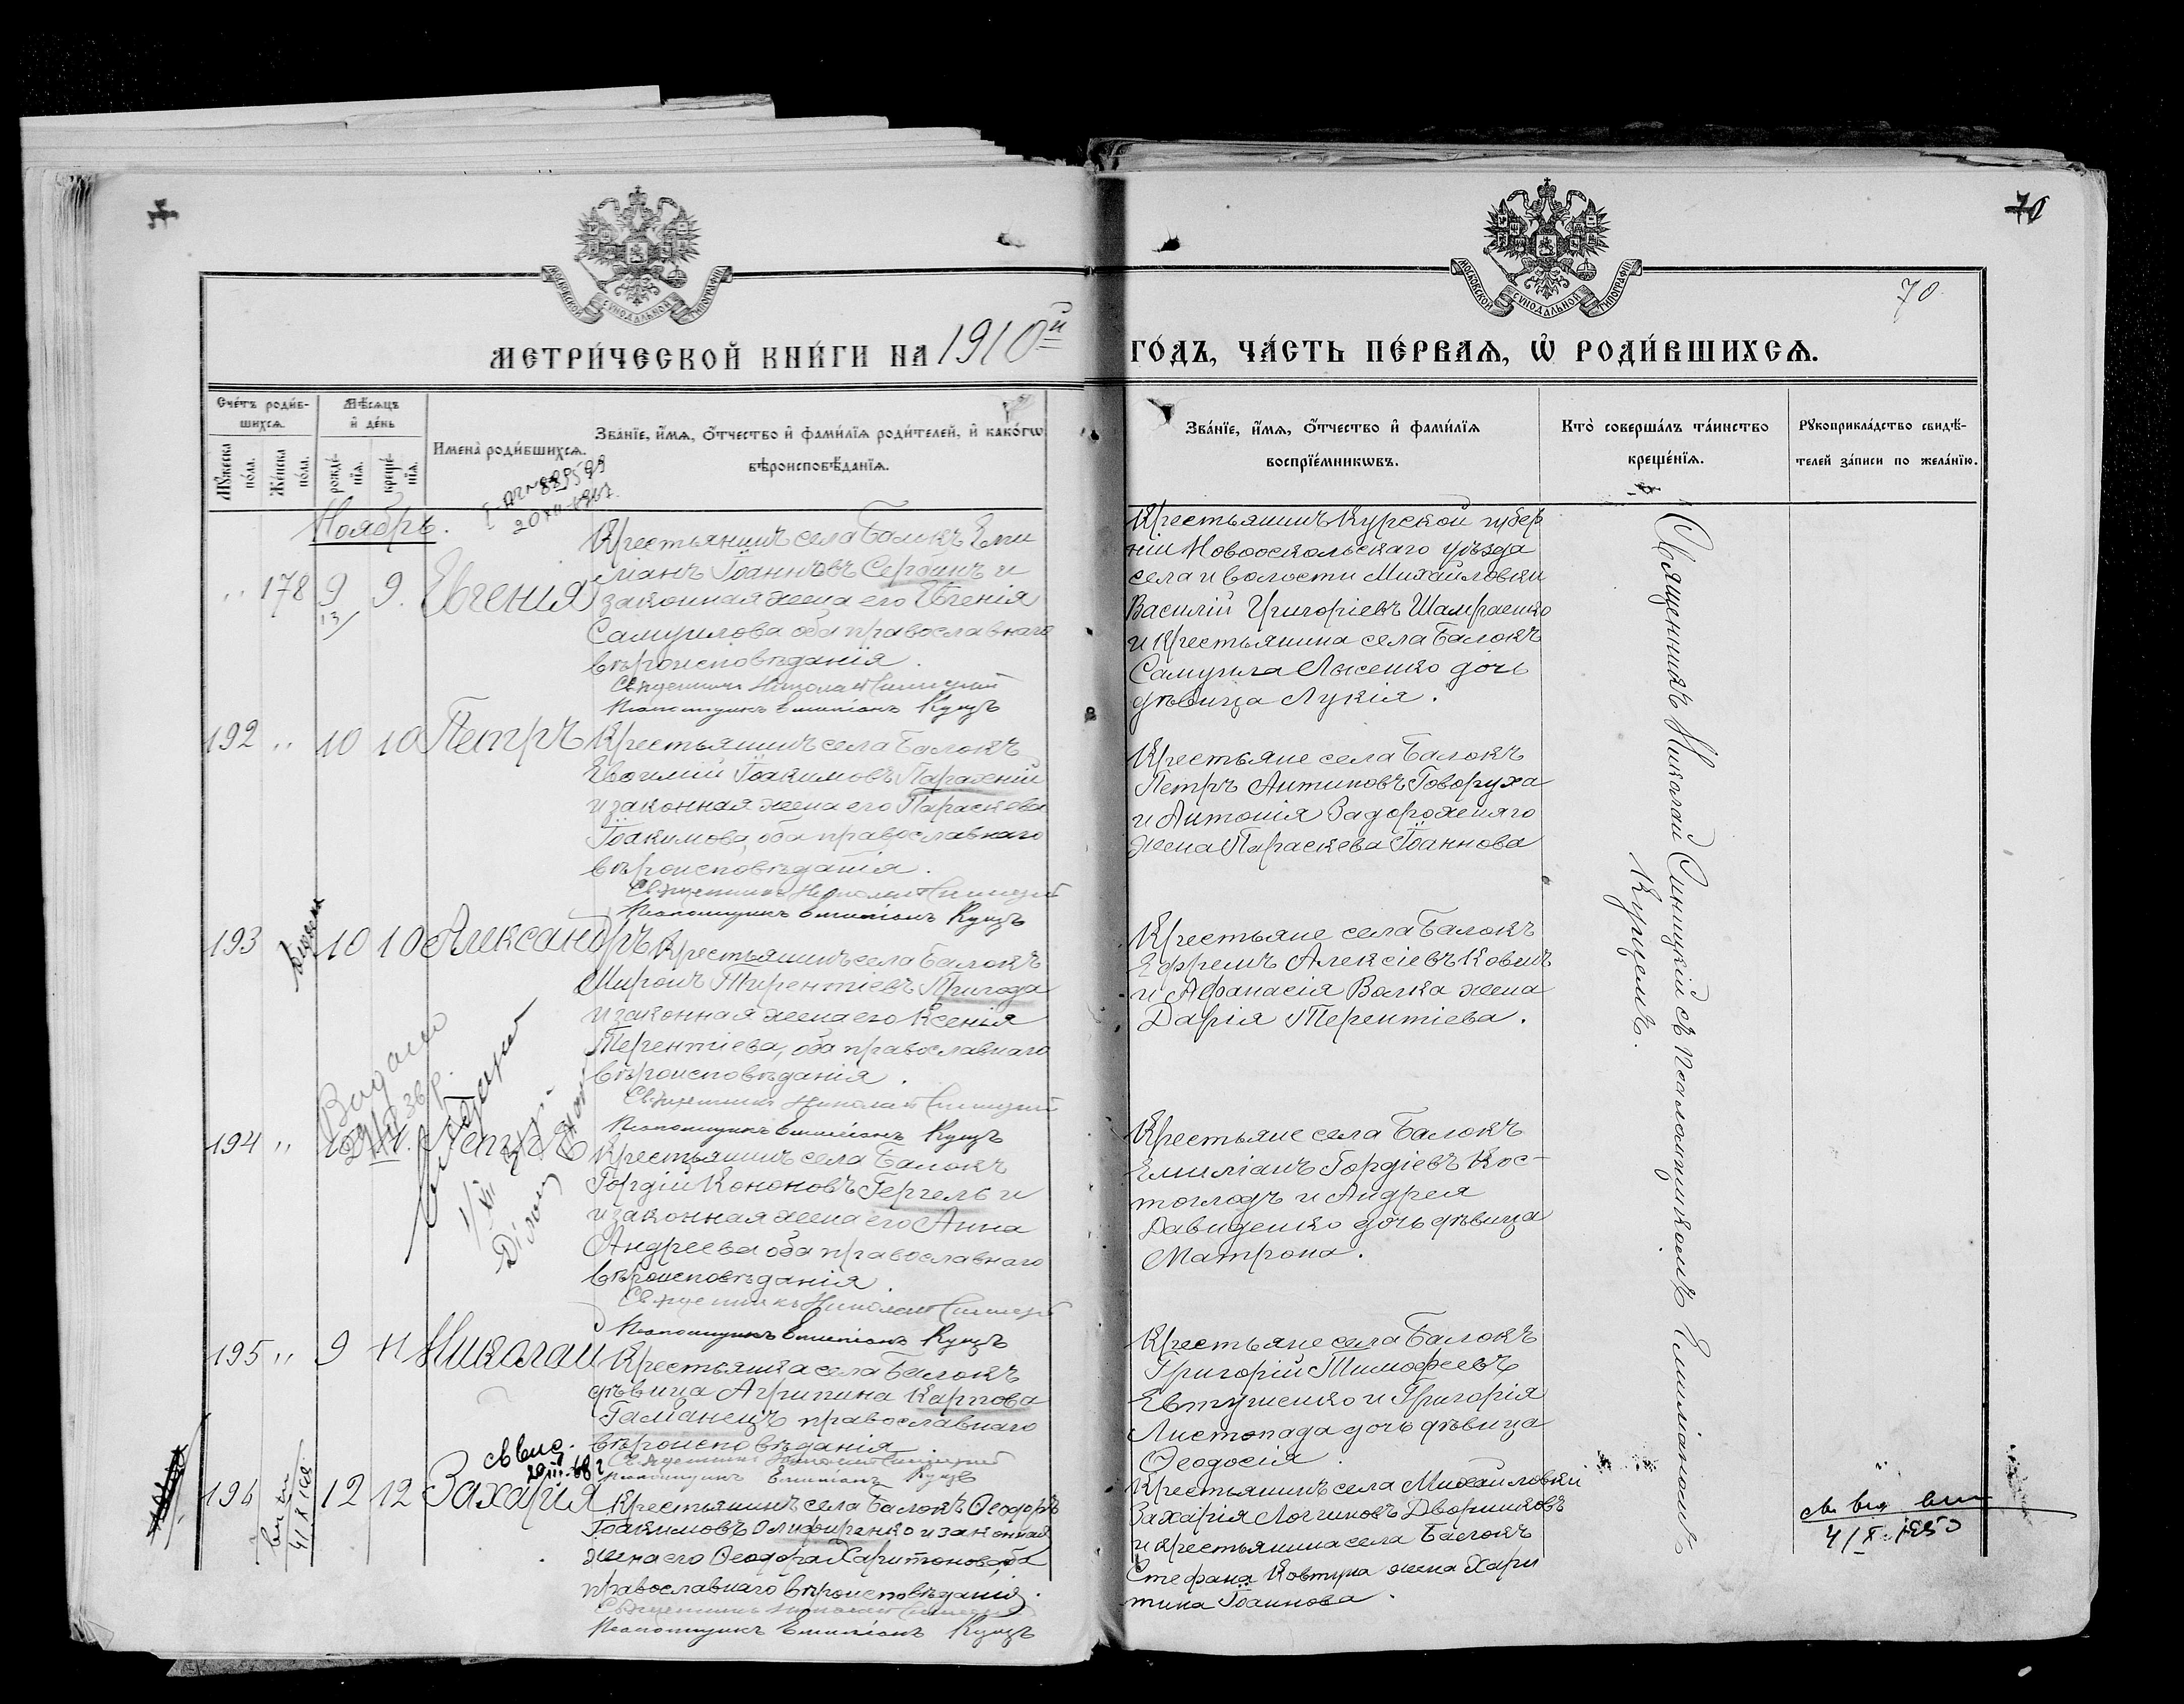 70
70
МОСКОВСКОЙ СѴНОДАЛЬНОЙ ТИПОГРАФІИ
МОСКОВСКОЙ СѴНОДАЛЬНОЙ ТИПОГРАФІИ
МЕТРИ́ЧЕСКОЙ КНИ́ГИ НА 1910й ГО́ДЪ, ЧА́СТЬ ПЕ́РВАѦ, Ѡ҆ РОДИ́ВШИХСѦ.
Сче́тъ роди́в-
шихсѧ.
Мѹжеска по́ла.
Же́нска по́ла.
Мѣ́сѧцъ
и҆ де́нь
рожде́-
нїѧ.
креще́-
нїѧ.
И҆мена̀ роди́вшихсѧ.
Зва́нїе, и҆́мѧ, ѻ҆́тчество и҆ фами́лїѧ роди́телей, и҆ како́гѡ
вѣроисповѣ́данїѧ.
Зва́нїе, и҆́мѧ, ѻ҆́тчество и҆ фами́лїѧ
воспрїе́мникѡвъ.
Кто̀ соверша́лъ та́инство
креще́нїѧ.
Рѹкоприкла́дство свидѣ́-
телей за́писи по жела́нїю.
Ноябрь.
" 178 9 9. Евгенія
13/
Крестьянинъ села Балокъ Еми
ліанъ Іоанновъ Сербинъ и
законная жена его Евгенія
Самуилова оба православнаго
вѣроисповѣданія.
Священникъ Николай Синицкій
Псаломщикъ Емиліанъ Куцъ
Крестьянинъ Курской губер
ніи Новооскольскаго уѣзда
села и волости Михайловки
Василій Григоріевъ Шамраенко
и крестьянина села Балокъ
Самуила Лысенко дочь
дѣвица Лукія.
192 " 10 10 Петръ
Крестьянинъ села Балокъ
Евѳимій Іоакимовъ Парахній
и законная жена его Параскева
Іоакимова, оба православнаго
вѣроисповѣданія.
Священникъ Николай Синицкій
Псаломщикъ Емиліанъ Куцъ
Крестьяне села Балокъ
Петръ Антиповъ Говоруха
и Антонія Задорожняго
жена Параскева Іоаннова
193 10 10 Александръ
Крестьянинъ села Балокъ
Миронъ Терентіевъ Пригода
и законная жена его Ксенія
Терентіева, оба православнаго
вѣроисповѣданія.
Священникъ Николай Синицкій
Псаломщикъ Емиліанъ Куцъ
Крестьяне села Балокъ
Ефремъ Алексіевъ Ковшъ
и Афанасія Волка жена
Дарія Терентіева.
194 " 10 Петръ
Крестьянинъ села Балокъ
Гордій Кононовъ Гергель и
и законная жена его Анна
Андреева оба православнаго
вѣроисповѣданія
Священникъ Николай Синицкій
Псаломщикъ Емиліанъ Куцъ
Крестьяне села Балокъ
Емиліанъ Гордіевъ Кос-
тоглодъ и Андрея
Давиденко дочь дѣвица
Матрона.
195 " 9 11 Николай
Крестьянка села Балокъ
дѣвица Агрипина Карпова
Гаманецъ православнаго
вѣроисповѣданія
Священникъ Николай Синицкій
Псаломщикъ Емиліанъ Куцъ
Крестьяне села Балокъ
Григорій Тимофеевъ
Евтушенко и Григорія
Листопада дочь дѣвица
Ѳеодосія.
196 12 12 Захарія
Крестьянинъ села Балокъ Ѳеодоръ
Іоакимовъ Олифиренко и законная
жена его Ѳеодора Харитонова, оба
православнаго вѣроисповѣданія.
Священникъ Николай Синицкій
Псаломщикъ Емиліанъ Куцъ
Крестьянинъ села Михайловки
Захарія Логиновъ Дворниковъ
и крестьянина села Балокъ
Стефана Ковтуна жена Хари
тина Іоаннова.
Священникъ Николай Синицкій съ псаломщикомъ Емиліаномъ
Куцемъ.
4/X 1950